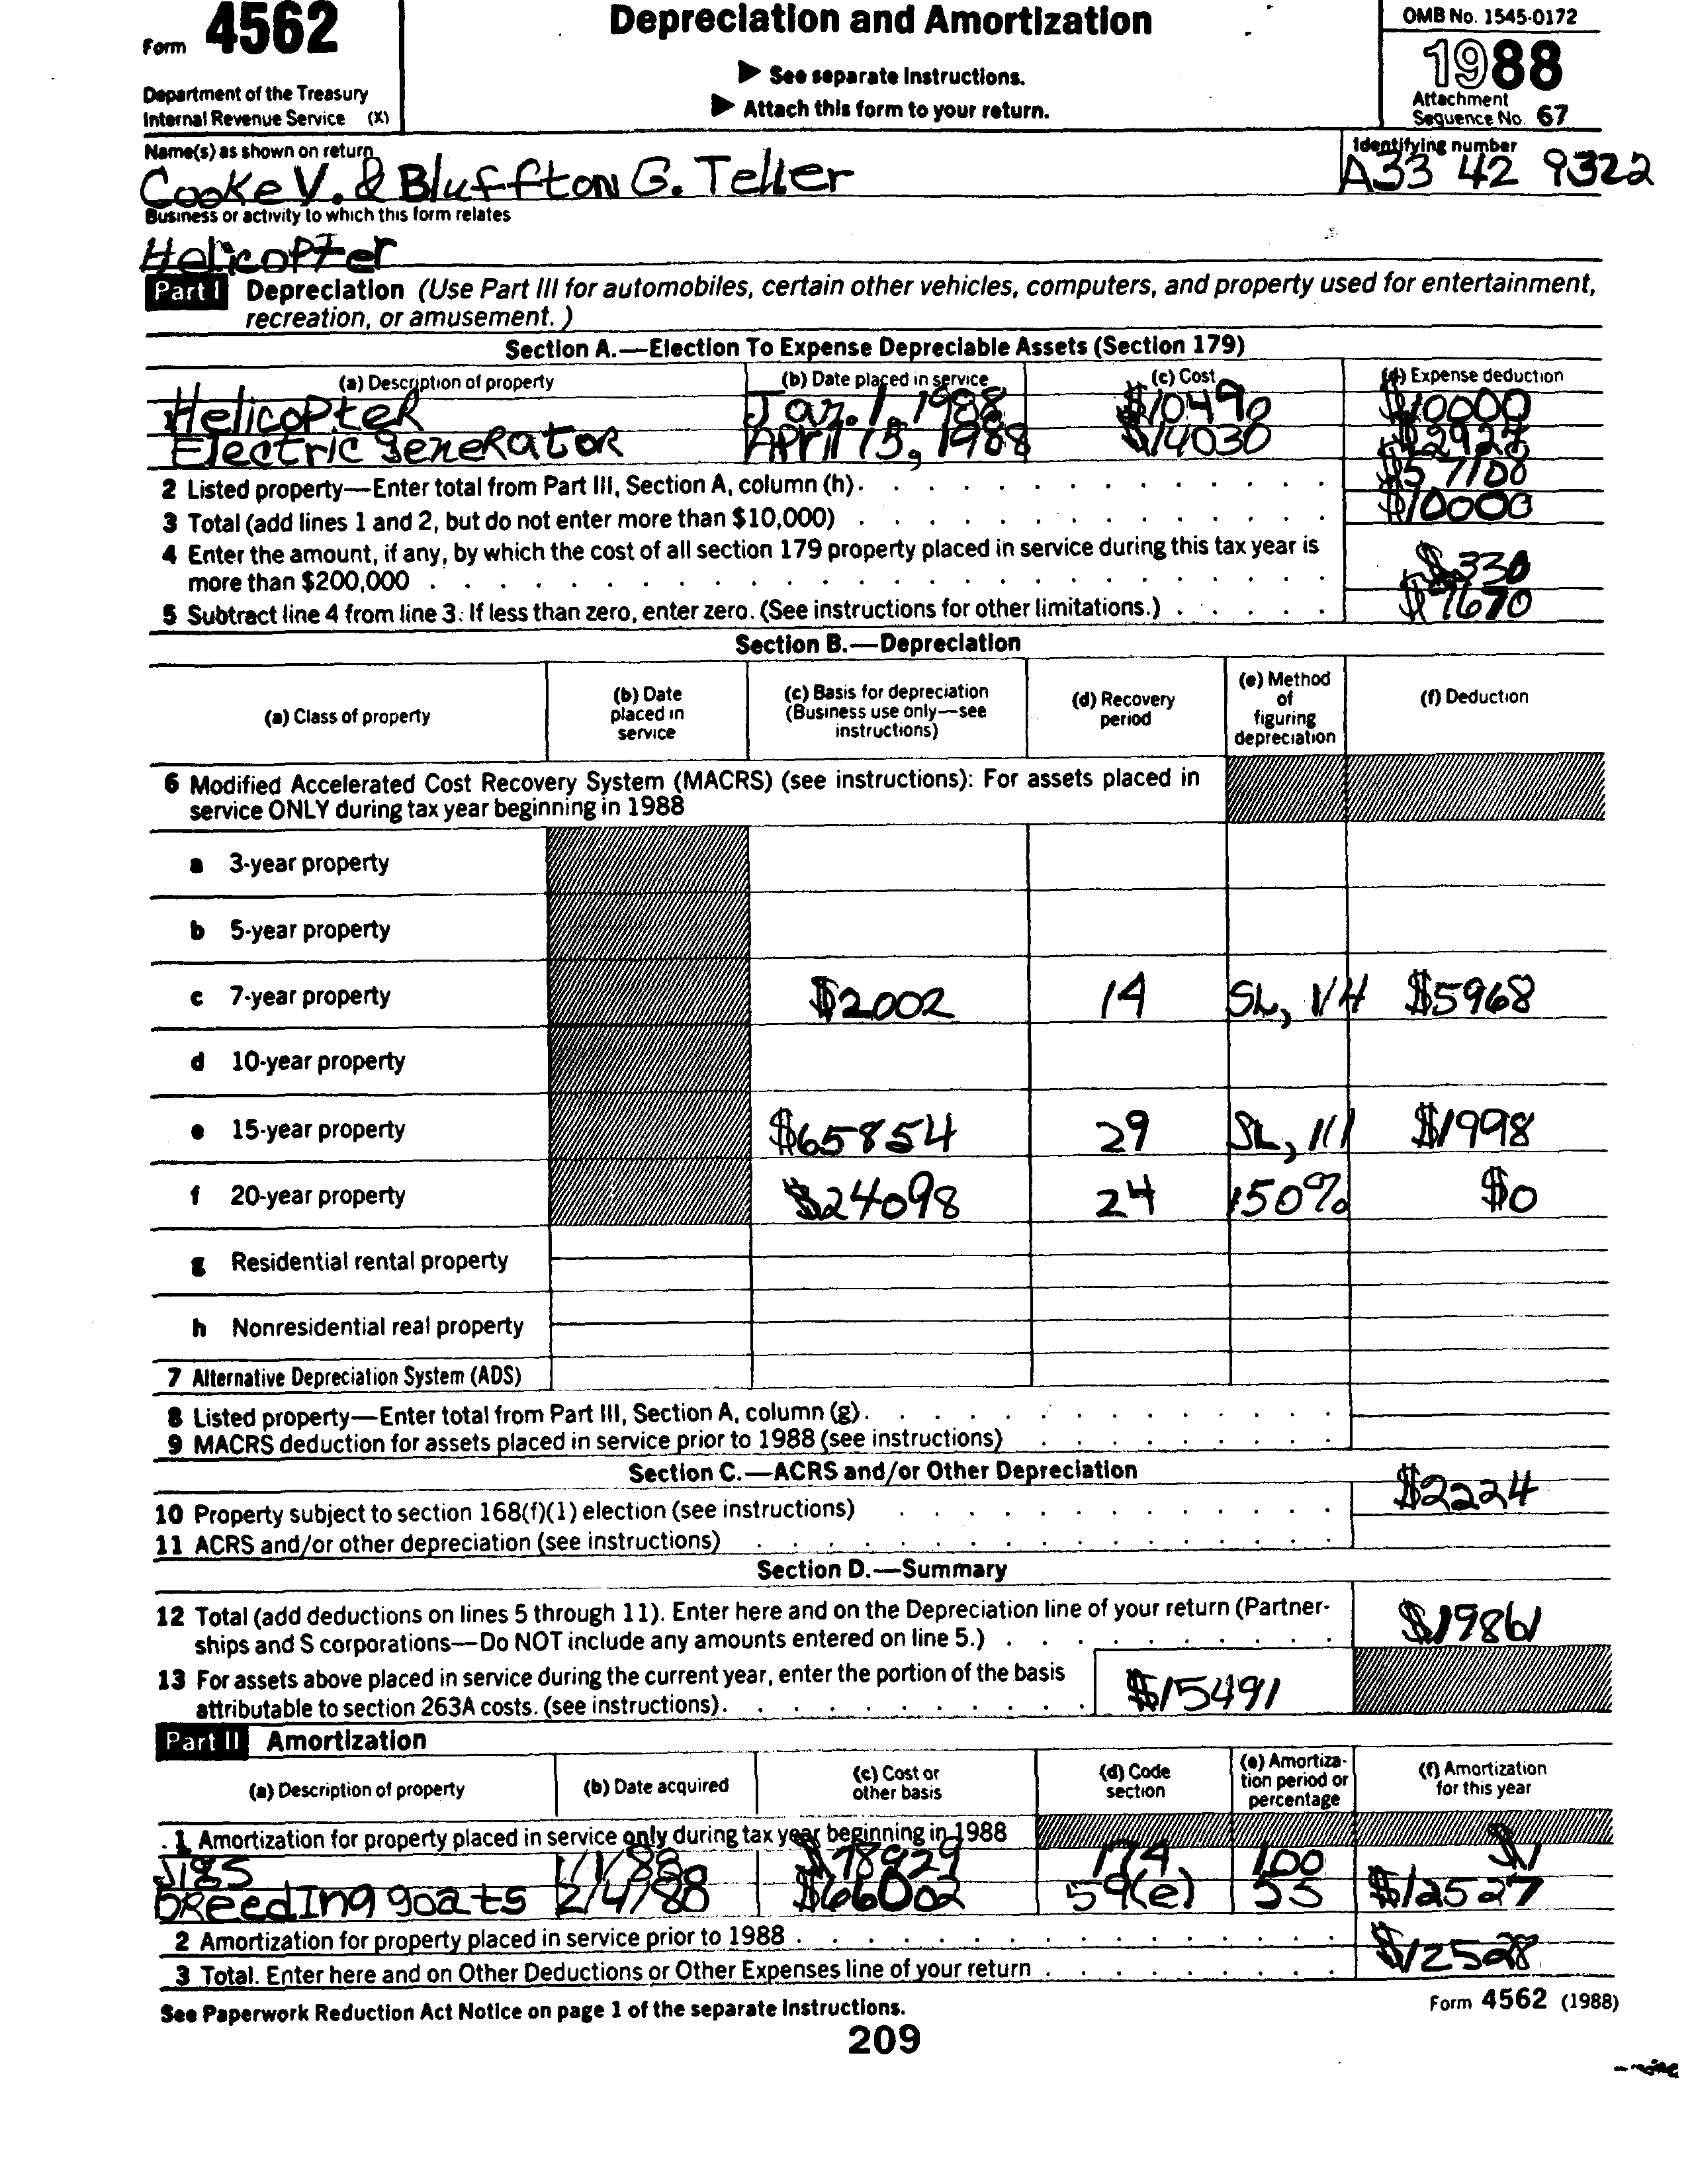 Form 4562
Depreciation and Amortization
OMB No. 1545-0172
1988
▶ See separate Instructions.
▶ Attach this form to your return.
Department of the Treasury
Internal Revenue Service (X)
Attachment
Sequence No. 67
Name(s) as shown on return
Identifying number
Cooke V. & Bluffton G. Teller
A33 42 9322
Business or activity to which this form relates
Helicopter
Part I Depreciation (Use Part III for automobiles, certain other vehicles, computers, and property used for entertainment,
recreation, or amusement.)
Section A.—Election To Expense Depreciable Assets (Section 179)
(a) Description of property (b) Date placed in service (c) Cost (d) Expense deduction
Helicopter Jan. 1, 1988 $10490 $10000
Electric generator April 15, 1988 $14030
2 Listed property—Enter total from Part III, Section A, column (h). $57108
3 Total (add lines 1 and 2, but do not enter more than $10,000) $10000
4 Enter the amount, if any, by which the cost of all section 179 property placed in service during this tax year is
more than $200,000 $330
5 Subtract line 4 from line 3. If less than zero, enter zero. (See instructions for other limitations.) $9670
Section B.—Depreciation
(a) Class of property
(b) Date
placed in
service
(c) Basis for depreciation
(Business use only—see
instructions)
(d) Recovery
period
(e) Method
of
figuring
depreciation
(f) Deduction
6 Modified Accelerated Cost Recovery System (MACRS) (see instructions): For assets placed in
service ONLY during tax year beginning in 1988
a 3-year property
b 5-year property
c 7-year property $2002 14 SL, 1/4 $5968
d 10-year property
e 15-year property $65854 29 SL, 1/1 $1998
f 20-year property $24098 24 150% $0
g Residential rental property
h Nonresidential real property
7 Alternative Depreciation System (ADS)
8 Listed property—Enter total from Part III, Section A, column (g).
9 MACRS deduction for assets placed in service prior to 1988 (see instructions)
Section C.—ACRS and/or Other Depreciation
10 Property subject to section 168(f)(1) election (see instructions) $2224
11 ACRS and/or other depreciation (see instructions)
Section D.—Summary
12 Total (add deductions on lines 5 through 11). Enter here and on the Depreciation line of your return (Partner-
ships and S corporations—Do NOT include any amounts entered on line 5.) $19861
13 For assets above placed in service during the current year, enter the portion of the basis
attributable to section 263A costs. (see instructions). $15491
Part II Amortization
(a) Description of property
(b) Date acquired
(c) Cost or
other basis
(d) Code
section
(e) Amortiza-
tion period or
percentage
(f) Amortization
for this year
1 Amortization for property placed in service only during tax year beginning in 1988
Jigs 1/1/88 $78929 174 100 $1
breeding goats 2/4/88 $66002 59(e) 55 $12527
2 Amortization for property placed in service prior to 1988
3 Total. Enter here and on Other Deductions or Other Expenses line of your return $12528
See Paperwork Reduction Act Notice on page 1 of the separate Instructions.
Form 4562 (1988)
209